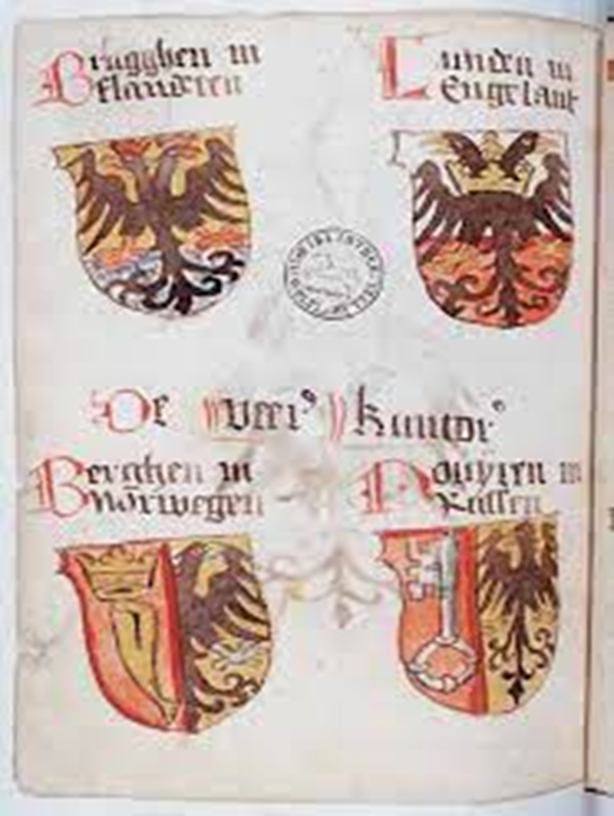 Brugghen in
Flanderen
Lunden in
Engelant
De veer kuntor
Berghen in
Norwegen
in
Russen